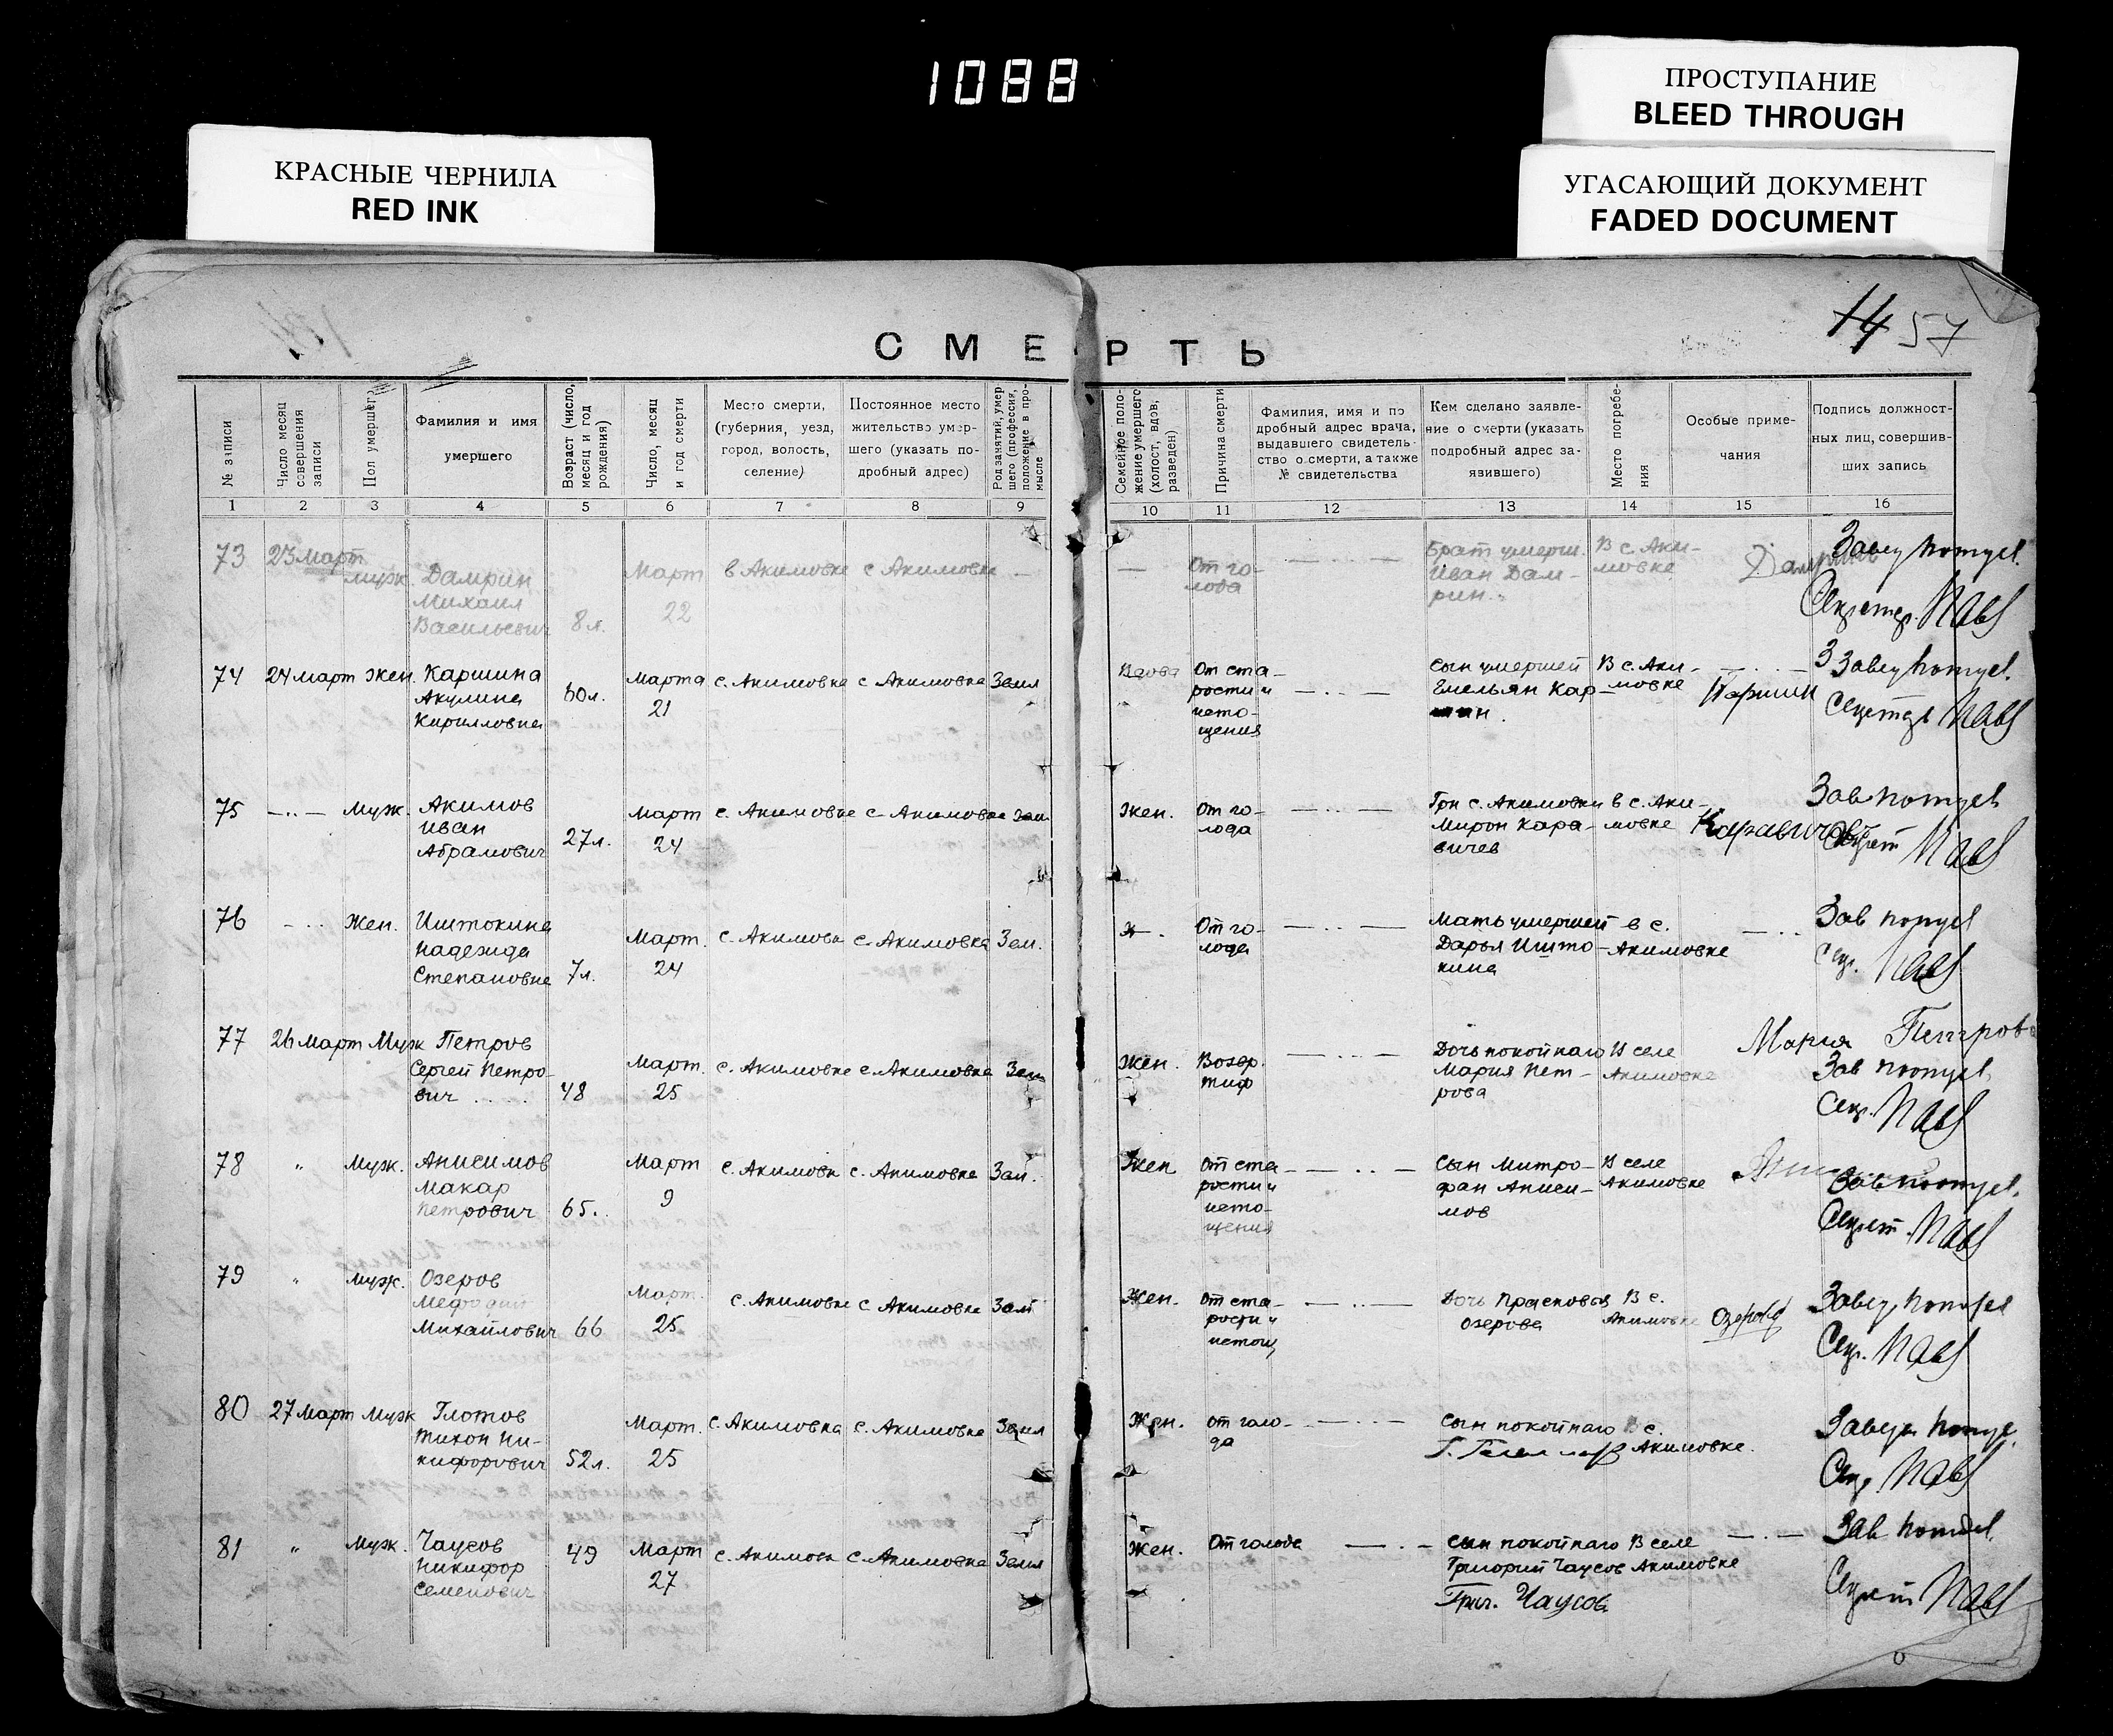 1088
ПРОСТУПАНИЕ
BLEED THROUGH
КРАСНЫЕ ЧЕРНИЛА
RED INK
УГАСАЮЩИЙ ДОКУМЕНТ
FADED DOCUMENT
14 57
СМЕРТЬ
№ записи
Число месяц совершения записи
Пол умершего
Фамилия и имя умершего
Возраст (число, месяц и год рождения)
Число, месяц и год смерти
Место смерти, (губерния, уезд, город, волость, селение)
Постоянное место жительство умершего (указать подробный адрес)
Род занятий, умершего (профессия, положение в промысле
Семейное положение умершего (холост, вдов, разведен)
Причина смерти
Фамилия, имя и по дробный адрес врача, выдавшего свидетельство о смерти, а также № свидетельства
Кем сделано заявление о смерти (указать подробный адрес заявившего)
Место погребения
Особые примечания
Подпись должностных лиц, совершивших запись
1 2 3 4 5 6 7 8 9 10 11 12 13 14 15 16
73 23 март муж. Дамрин Михаил Васильевич 8 л. Март 22 в Акимовке с Акимовке — — От голода Брат умерш. Иван Дамрин. В с. Акимовке
74 24 март жен. Каршина Акулина Кирилловна 60 л. Марта 21 с. Акимовке с Акимовке Земл Вдова От старости и истощения Сын умершей Емельян Каршин. В с. Акимовке
75 —..— Муж. Акимов Иван Абрамович 27 л. Март 24 с. Акимовке с Акимовке зем Жен. От голода Грн с. Акимовки Мирон Каравичев в с. Акимовке Каравичев
76 - .. Жен. Иштокина Надежда Степановна 7 л. Март. 24 с. Акимовк с. Акимовка Зем. От голода Мать умершей Дарья Иштокина в с. Акимовке
77 26 март Муж Петров Сергей Петрович 48 Март. 25 с. Акимовке с. Акимовка Зем Жен. Возвр. тиф Дочь покойнаго Мария Петрова В селе Акимовке Мария Петрова
78 " Муж. Анисимов Макар Петрович 65. Март 9 с. Акимовк с. Акимовке Зем. Жен От старости и истощения Сын Митрофан Анисимов В селе Акимовке
79 " Муж. Озеров Мефодий Михайлович 66 Март. 25 с. Акимовке с Акимовке Зем Жен. От старости и истощ, Дочь Прасковья Озерова В с. Акимовке
80 27 Март Муж Глотов Тихон Никифорович 52 л. Март. 25 с. Акимовка с. Акимовке Земл Жен. От голода Сын покойнаго В с. Акимовке.
81 " Муж. Чаусов Никифор Семенович 49 Март 27 с. Акимовк с. Акимовка Земл Жен. От голода Сын покойнаго Григорий Чаусов В селе Акимовке
Григ. Чаусов